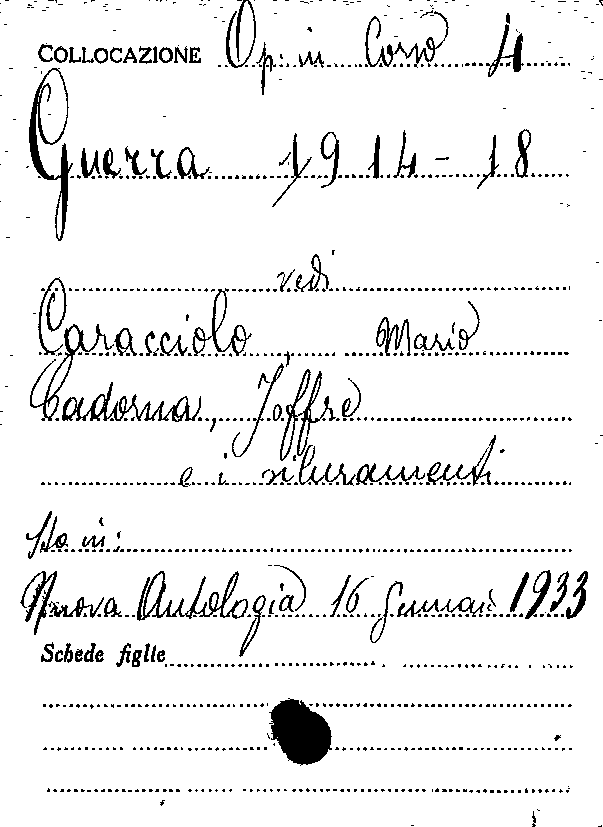 COLLOCAZIONE Op. in Corso 4
Guerra 1914-18
vedi
Caracciolo, Mario
Cadorna, Joffre
e i siluramenti
Sta in:
Nuova Antologia 16 Gennaio 1933
Schede figlie